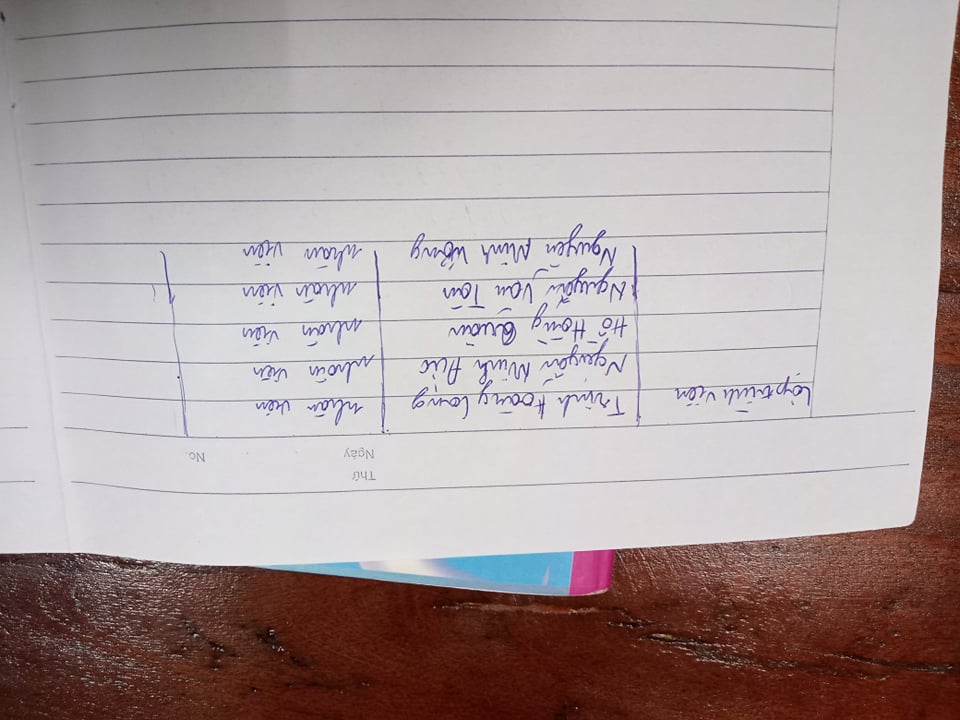 Thứ
Ngày No.
Lập trình viên Trịnh Hoàng Long nhân viên
Nguyễn Minh Đức nhân viên
Hồ Hồng Quân nhân viên
Nguyễn Văn Tân nhân viên
Nguyễn Minh Vương nhân viên